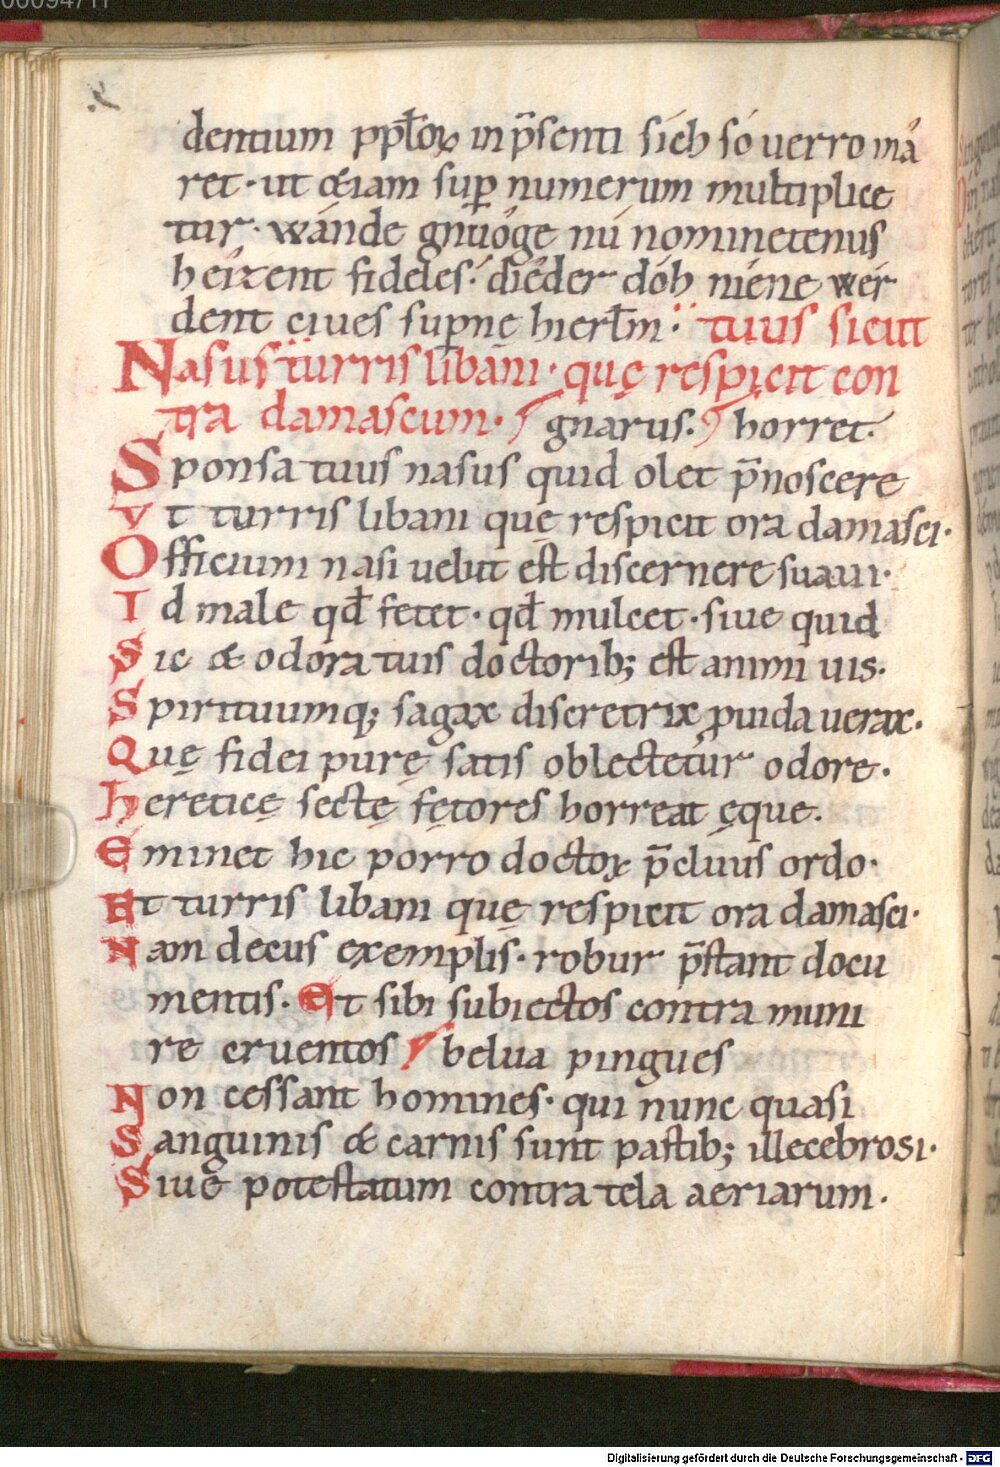 00094711
dentium pp̄loꝝ in p̄senti sich só uerro mǎ
ret · ut &iam sup̱ numerum multiplice
tur · wánde gnuóge nú nominetenus
heizent fideles · dieder dóh niene wer
dent ciues sup̱nę hierl̄m · tuus sicut
Nasus turris libani · quę respicit con
tra damascum · gnarus · horret ·
Sponsa tuus nasus quid olet p̄noscere
Vt turris libani quę respicit ora damasci ·
Officium nasi uelut est discernere suaui ·
Id male qđ fetet · qđ mulcet · siue quid
Sic & odora tuis doctorib; est animi uis ·
Spirituumq; sagax discretrix ꝓuida uerax ·
Quę fidei purę satis oblectetur odore ·
Hereticę sectę fętores horreat ęque ·
Eminet hic porro doctoꝝ p̄cluus ordo ·
Et turris libani quę respicit ora damasci ·
Nam decus exemplis · robur p̄stant docu
mentis · Et sibi subiectos contra muni
re cruentos belua pingues
Non cessant homines · qui nunc quasi
Sanguinis & carnis sunt pastib; illecebrosi ·
Siue potestatum contra tela aeriarum ·
Digitalisierung gefördert durch die Deutsche Forschungsgemeinschaft - DFG